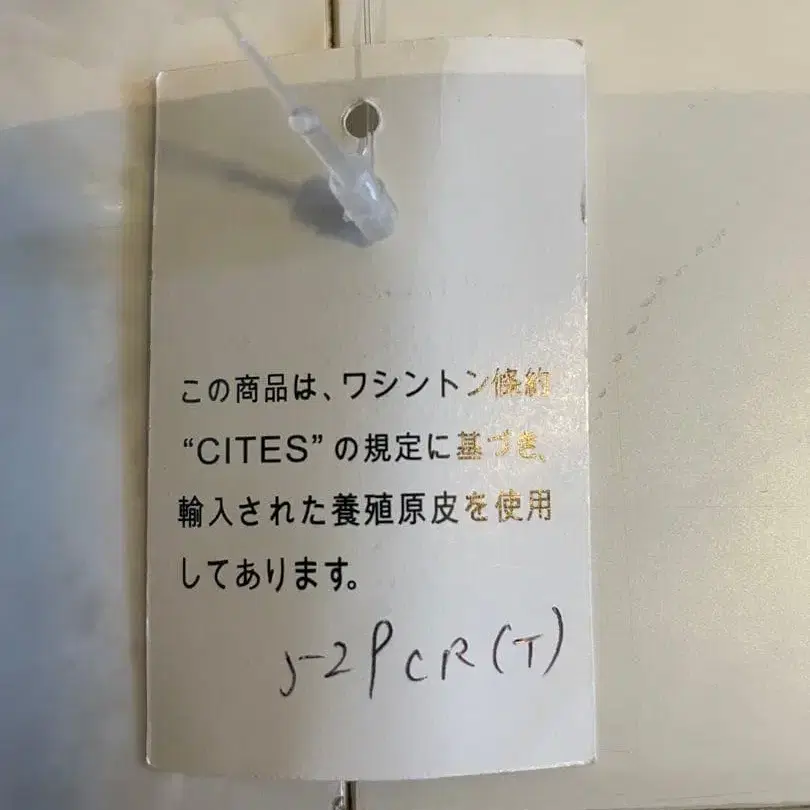 この商品は、ワシントン條約
“CITES”の規定に基づき、
輸入された養殖原皮を使用
してあります。
J-29 CR(T)